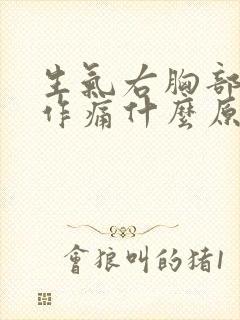 生氣右胸部
作痛什麼原
會狼叫的猪1